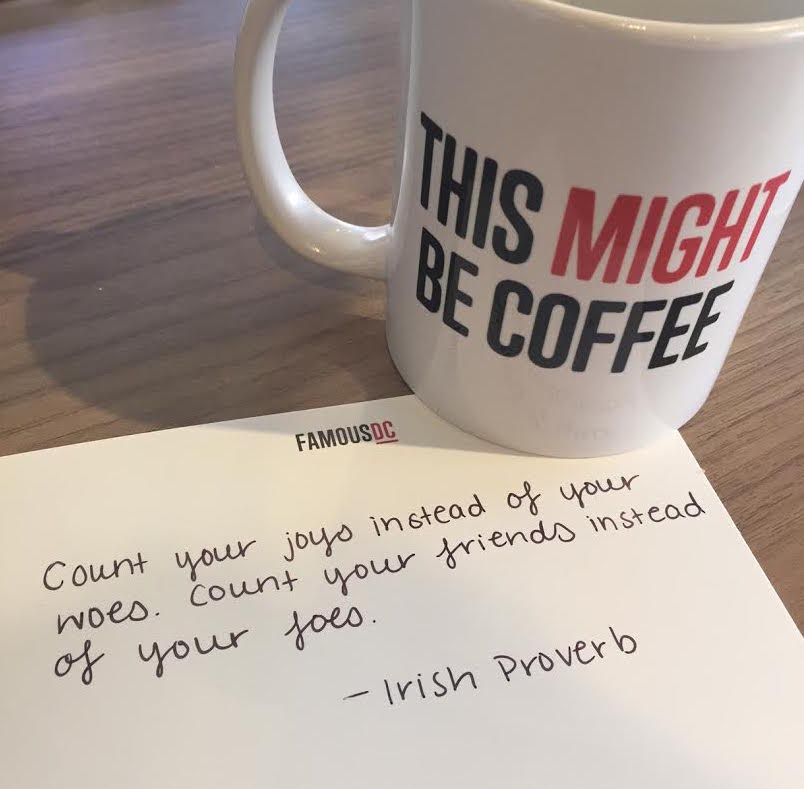 THIS MIGHT
BE COFFEE
FAMOUSDC
Count your joys instead of your
woes. Count your friends instead
of your foes.
- Irish Proverb